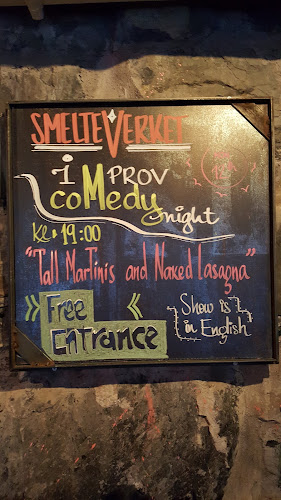 SMELTEVERKET
iMPROV
coMedy
night
Kl. 19:00
"Tall Martinis and Naked Lasagna"
Free
ENTRANCE
Show is
in English